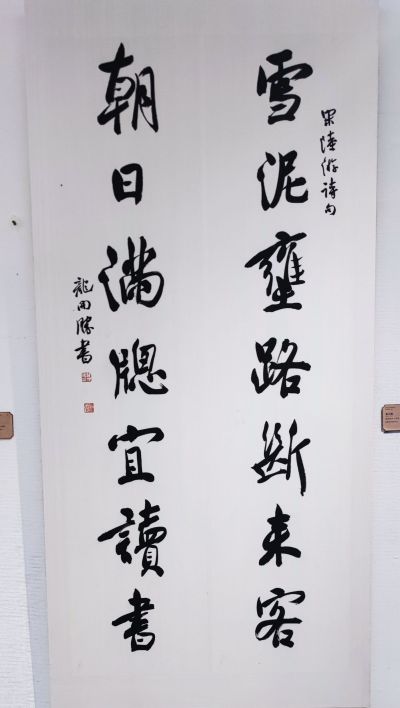 宋陸游詩句
雪泥壅路斷来客
朝日滿牕宜讀書
龍開勝書